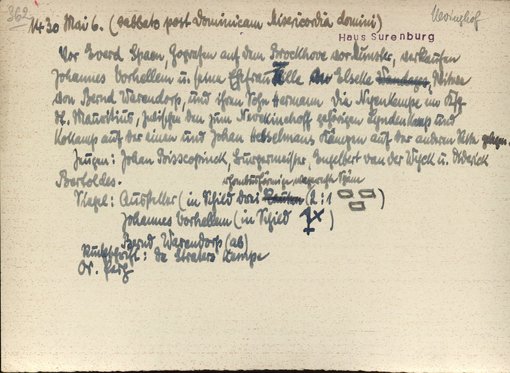 362
1430 Mai 6. (sabbato post dominicam Misericordia domini)
Weringhof
Haus Surenburg
Vor Everd Spaen, Gografen auf dem Brockhove vor Munster, verkaufen
Johannes Vorhellem u. seine Ehefrau Elseke Witwe
von Bernd Warendorp, und ihren Sohn Hermann die Nyenkempe im Ksp.
St. Mauritius, zwischen den zum gehörigen Lyndenkamp und
Kokamp auf der einen und Johan Kämpen auf der anderen Seite gelegen.
Zeugen: Johan Bisscopinck, Burgermeister, Engelbert van der Wyck u. Diderick
Bertoldes.
Siegel: Aussteller (in Schild drei 2:1)
Johannes Vorhellem (in Schild)
Bernd Warendorp (ab)
Rückschrift: de Straters Kempe
Or. Perg